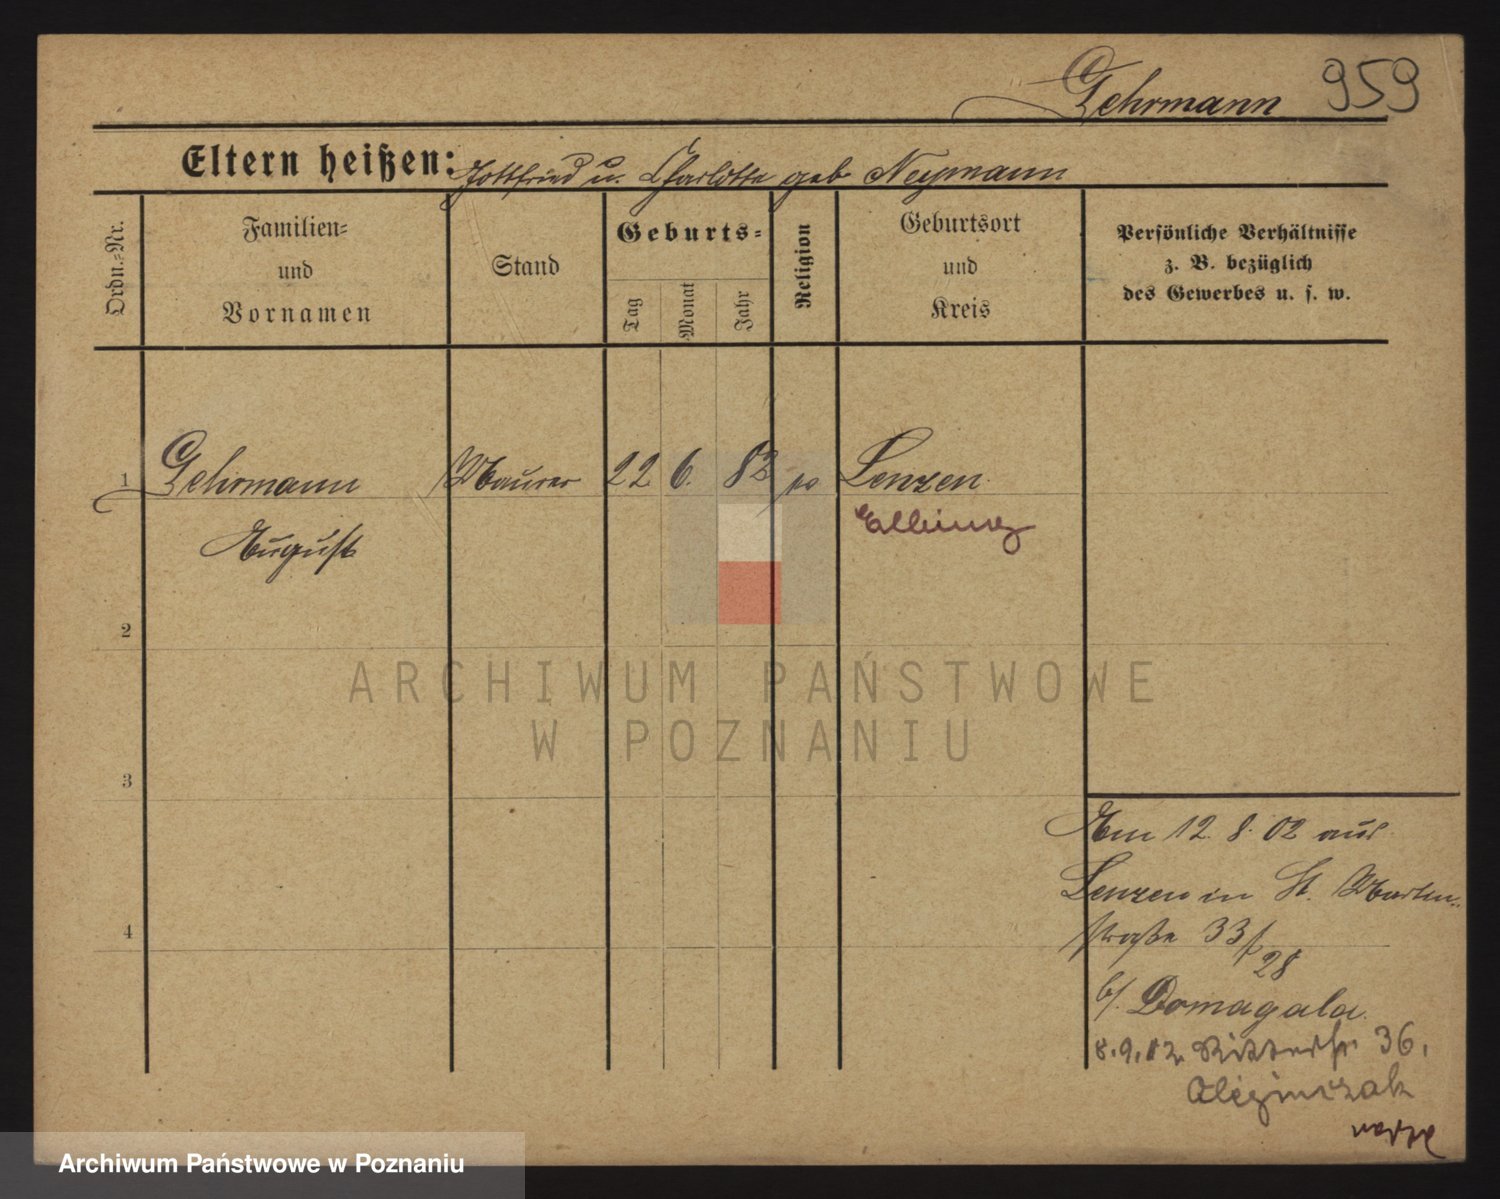 Gehrmann 959
Eltern heißen: Gottfried u. Charlotte geb Neymann
Ordn.-Nr.
Familien-
und
Vornamen
Stand
Geburts-
Tag
Monat
Jahr
Religion
Geburtsort
und
Kreis
Persönliche Verhältnisse
z. B. bezüglich
des Gewerbes u. s. w.
1 Gehrmann Maurer 22 6. 82 Lenzen
August Elbing
2
3
4
Am 12. 8. 02 aus
Lenzen in St. Martin-
straße 33/28
b/. Domagala.
8.9.02 Ritterstr 36,
ARCHIWUM PAŃSTWOWE
W POZNANIU
Archiwum Państwowe w Poznaniu